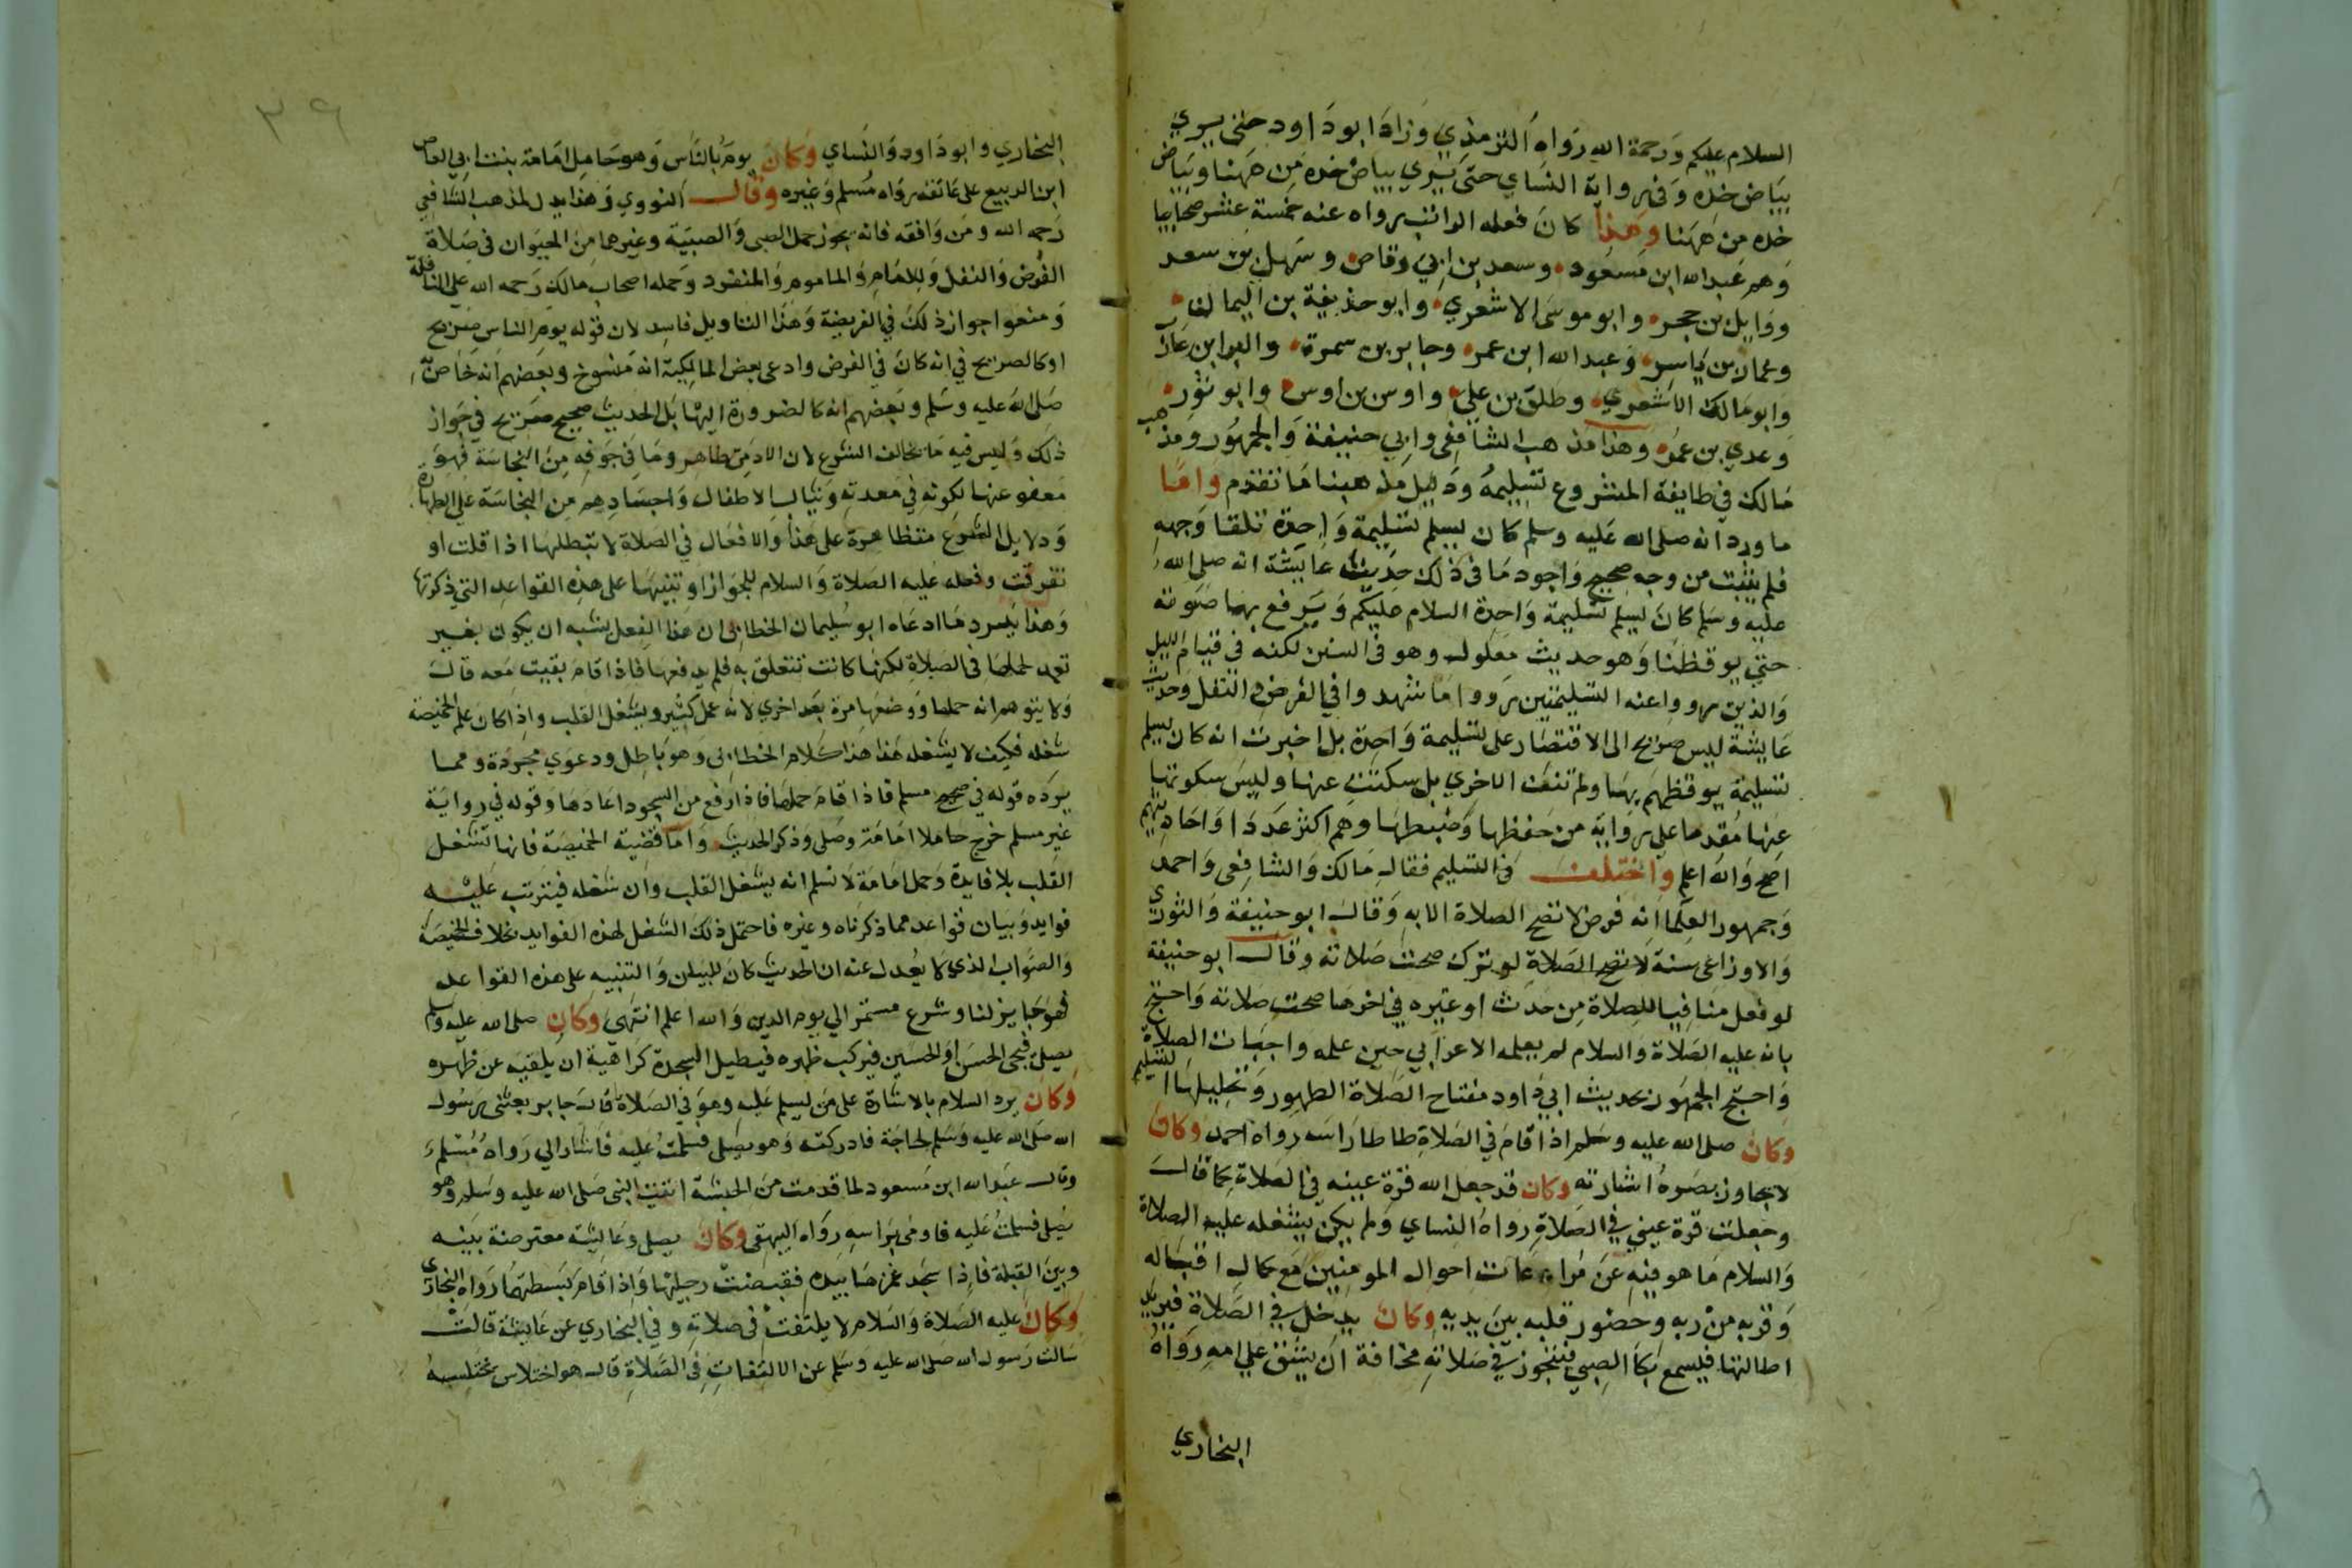 السلام عليكم ورحمة الله رواه الترمذي وزاد ابو داود حتى يري
بياض خده وفي رواية النساي حتى يري بياض خده من ههنا وبياض
خده من ههنا وهذا كان فعله الراتب رواه عنه خمسة عشر صحابيا
وهم عبد الله ابن مسعود وسعد بن ابي وقاص وسهل بن سعد
ووايل بن حجر وابو موسى الاشعري وابو حذيفة بن اليمان
وعمار بن ياسر وعبد الله ابن عمر وجابر بن سمرة والبرا بن عازب
وابو مالك الاشعري وطلق بن علي واوس بن اوس وابو ثور
وعدي بن عمر وهذا مذهب الشافعي وابي حنيفة والجمهور ومذهب
مالك في طايفة المشروع تسليمة ودليل مذهبنا ما تقدم واما
ما ورد انه صلى الله عليه وسلم كان يسلم تسليمة واحدة تلقا وجهه
فلم يثبت من وجه صحيح واجود ما في ذلك حديث عايشة انه صلى الله
عليه وسلم كان يسلم تسليمة واحدة السلام عليكم ويرفع بها صوته
حتي يوقظنا وهو حديث معلول وهو في السنن لكنه في قيام الليل
والذين رووا عنه التسليمتين رووا ما شهدوا في الفرض والنفل وحديث
عايشة ليس صريح الى الاقتصار على تسليمة واحدة بل اخبرت انه كان يسلم
تسليمة يوقظهم بها ولم تنف الاخري بل سكتت عنها وليس سكوتها
عنها مقدما على رواية من حفظها وضبطها وهم اكثر عددا واحاديثهم
اصح والله اعلم واختلف في التسليم فقال مالك والشافعي واحمد
وجمهور العلما انه فرض لا تصح الصلاة الا به وقال ابو حنيفة والثوري
والاوزاعي سنة لا تصح الصلاة لو ترك صحت صلاته وقال ابو حنيفة
لو فعل منافيا للصلاة من حدث او غيره في اخرها صحت صلاته واحتج
بانه عليه الصلاة والسلام لم يعلمه الاعرابي حين علمه واجبات الصلاة
واحتج الجمهور بحديث ابي داود مفتاح الصلاة الطهور وتحليلها التسليم
وكان صلى الله عليه وسلم اذا قام في الصلاة طاطا راسه رواه احمد وكان
لا يجاوز بصره اشارته وكان قد جعل الله قرة عينه في الصلاة كما قال
وجعلت قرة عيني في الصلاة رواه النساي ولم يكن يشغله عليه الصلاة
والسلام ما هو فيه عن مراعات احوال المومنين مع كمال اقباله
وقربه من ربه وحضور قلبه بين يديه وكان يدخل في الصلاة فيريد
اطالتها فيسمع بكا الصبي فيتجوز في صلاته مخافة ان يشق علي امه رواه
البخاري
٣٩
البخاري وابو داود والنساي وكان يوم بالناس وهو حامل امامة بنت ابي العاص
ابن الربيع على عاتقه رواه مسلم وغيره وقال النووي وهذا يدل لمذهب الشافعي
رحمه الله ومن وافقه فانه يجوز حمل الصبي والصبية وغيرها من الحيوان في صلاة
الفرض والنفل وللامام والماموم والمنفرد وحمله اصحاب مالك رحمه الله على النافلة
ومنعوا جواز ذلك في الفريضة وهذا التاويل فاسد لان قوله يوم الناس صريح
او كالصريح في انه كان في الفرض وادعى بعض المالكية انه منسوخ وبعضهم انه خاص به
صلى الله عليه وسلم وبعضهم انه كالضرورة اليها بل الحديث صحيح صريح في جواز
ذلك وليس فيه ما يخالف الشرع لان الادمي طاهر وما في جوفه من النجاسة فهو
معفو عنها لكونه في معدته وثياب الاطفال واجسادهم من النجاسة على الطهارة
ودلايل الشرع متظاهرة على هذا والافعال في الصلاة لا تبطلها اذا قلت او
تفرقت وفعله عليه الصلاة والسلام للجواز او تنبيها على هذه القواعد التي ذكرتها
وهذا يرد ما ادعاه ابو سليمان الخطابي ان هذا الفعل يشبه ان يكون بغير
تعمد لحملها في الصلاة لكنها كانت تتعلق به فلم يدفعها فاذا قام بقيت معه قال
ولا يتوهم انه حملها ووضعها مرة بعد اخري لانه عمل كثير ويشغل القلب واذا كان علم الخميصة
شغله فكيف لا يشغله هذا هذا كلام الخطابي وهو باطل ودعوي مجردة ومما
يرده قوله في صحيح مسلم فاذا قام حملها فاذا رفع من السجود اعادها وقوله في رواية
غير مسلم خرج حاملا امامة وصلى وذكر الحديث واما قضية الخميصة فانها تشغل
القلب بلا فايدة وحمل امامة لا نسلم انه يشغل القلب وان شغله فيترتب عليه
فوايد وبيان قواعد مما ذكرناه وغيره فاحتمل ذلك الشغل لهذه الفوايد بخلاف الخميصة
والصواب الذي لا يعدل عنه ان الحديث كان للبيان والتنبيه على هذه القواعد
فهو جايز لنا وشرع مستمر الي يوم الدين والله اعلم انتهى وكان صلى الله عليه وسلم
يصلي فيجى الحسن او الحسين فيركب ظهره فيطيل السجدة كراهية ان يلقيه عن ظهره
وكان يرد السلام بالاشارة على من يسلم عليه وهو في الصلاة قال جابر بعثني رسول
الله صلى الله عليه وسلم لحاجة فادركته وهو يصلي فسلمت عليه فاشار الي رواه مسلم
وقال عبد الله ابن مسعود لما قدمت من الحبشة اتيت النبي صلى الله عليه وسلم وهو
يصلي فسلمت عليه فاومى براسه رواه البيهقي وكان يصلي وعايشة معترضة بينه
وبين القبلة فاذا سجد غمزها بيده فقبضت رجليها واذا قام بسطتهما رواه البخاري
وكان عليه الصلاة والسلام لا يلتفت في صلاته وفي البخاري عن عايشة قالت
سالت رسول الله صلى الله عليه وسلم عن الالتفات في الصلاة قال هو اختلاس يختلسه